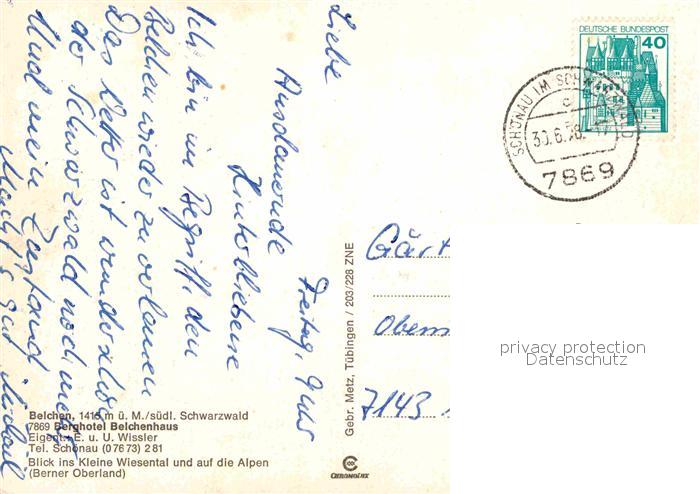 Liebe
Ausdauernde
Hinterbliebene
Freitag, 9 Uhr
Ich bin im Begriff, den
Belchen wieder zu verlassen
Das Wetter ist wunderschön
der Schwarzwald noch mehr
Und mein Zustand
Macht's gut
DEUTSCHE BUNDESPOST
40
SCHÖNAU IM SCHWARZWALD
30.6.78
7869
Gärt
Obern
7143
Gebr. Metz, Tübingen / 203/228 ZNE
privacy protection
Datenschutz
Belchen, 1415 m ü. M./südl. Schwarzwald
7869 Berghotel Belchenhaus
Eigent. E. u. U. Wissler
Tel. Schönau (07673) 281
Blick ins Kleine Wiesental und auf die Alpen
(Berner Oberland)